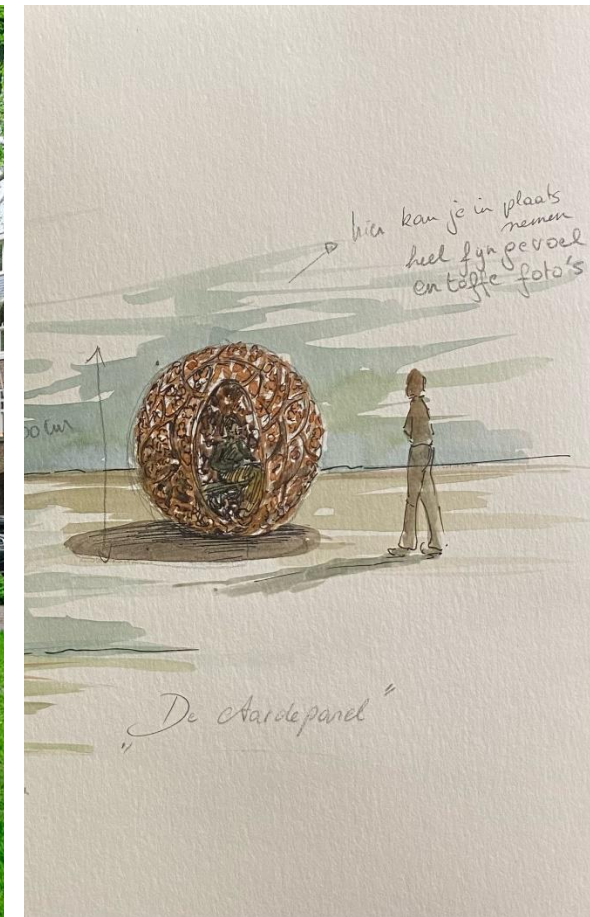 hier kan je in plaats
nemen
heel fijn gevoel
en toffe foto's
„De Aardeparel"